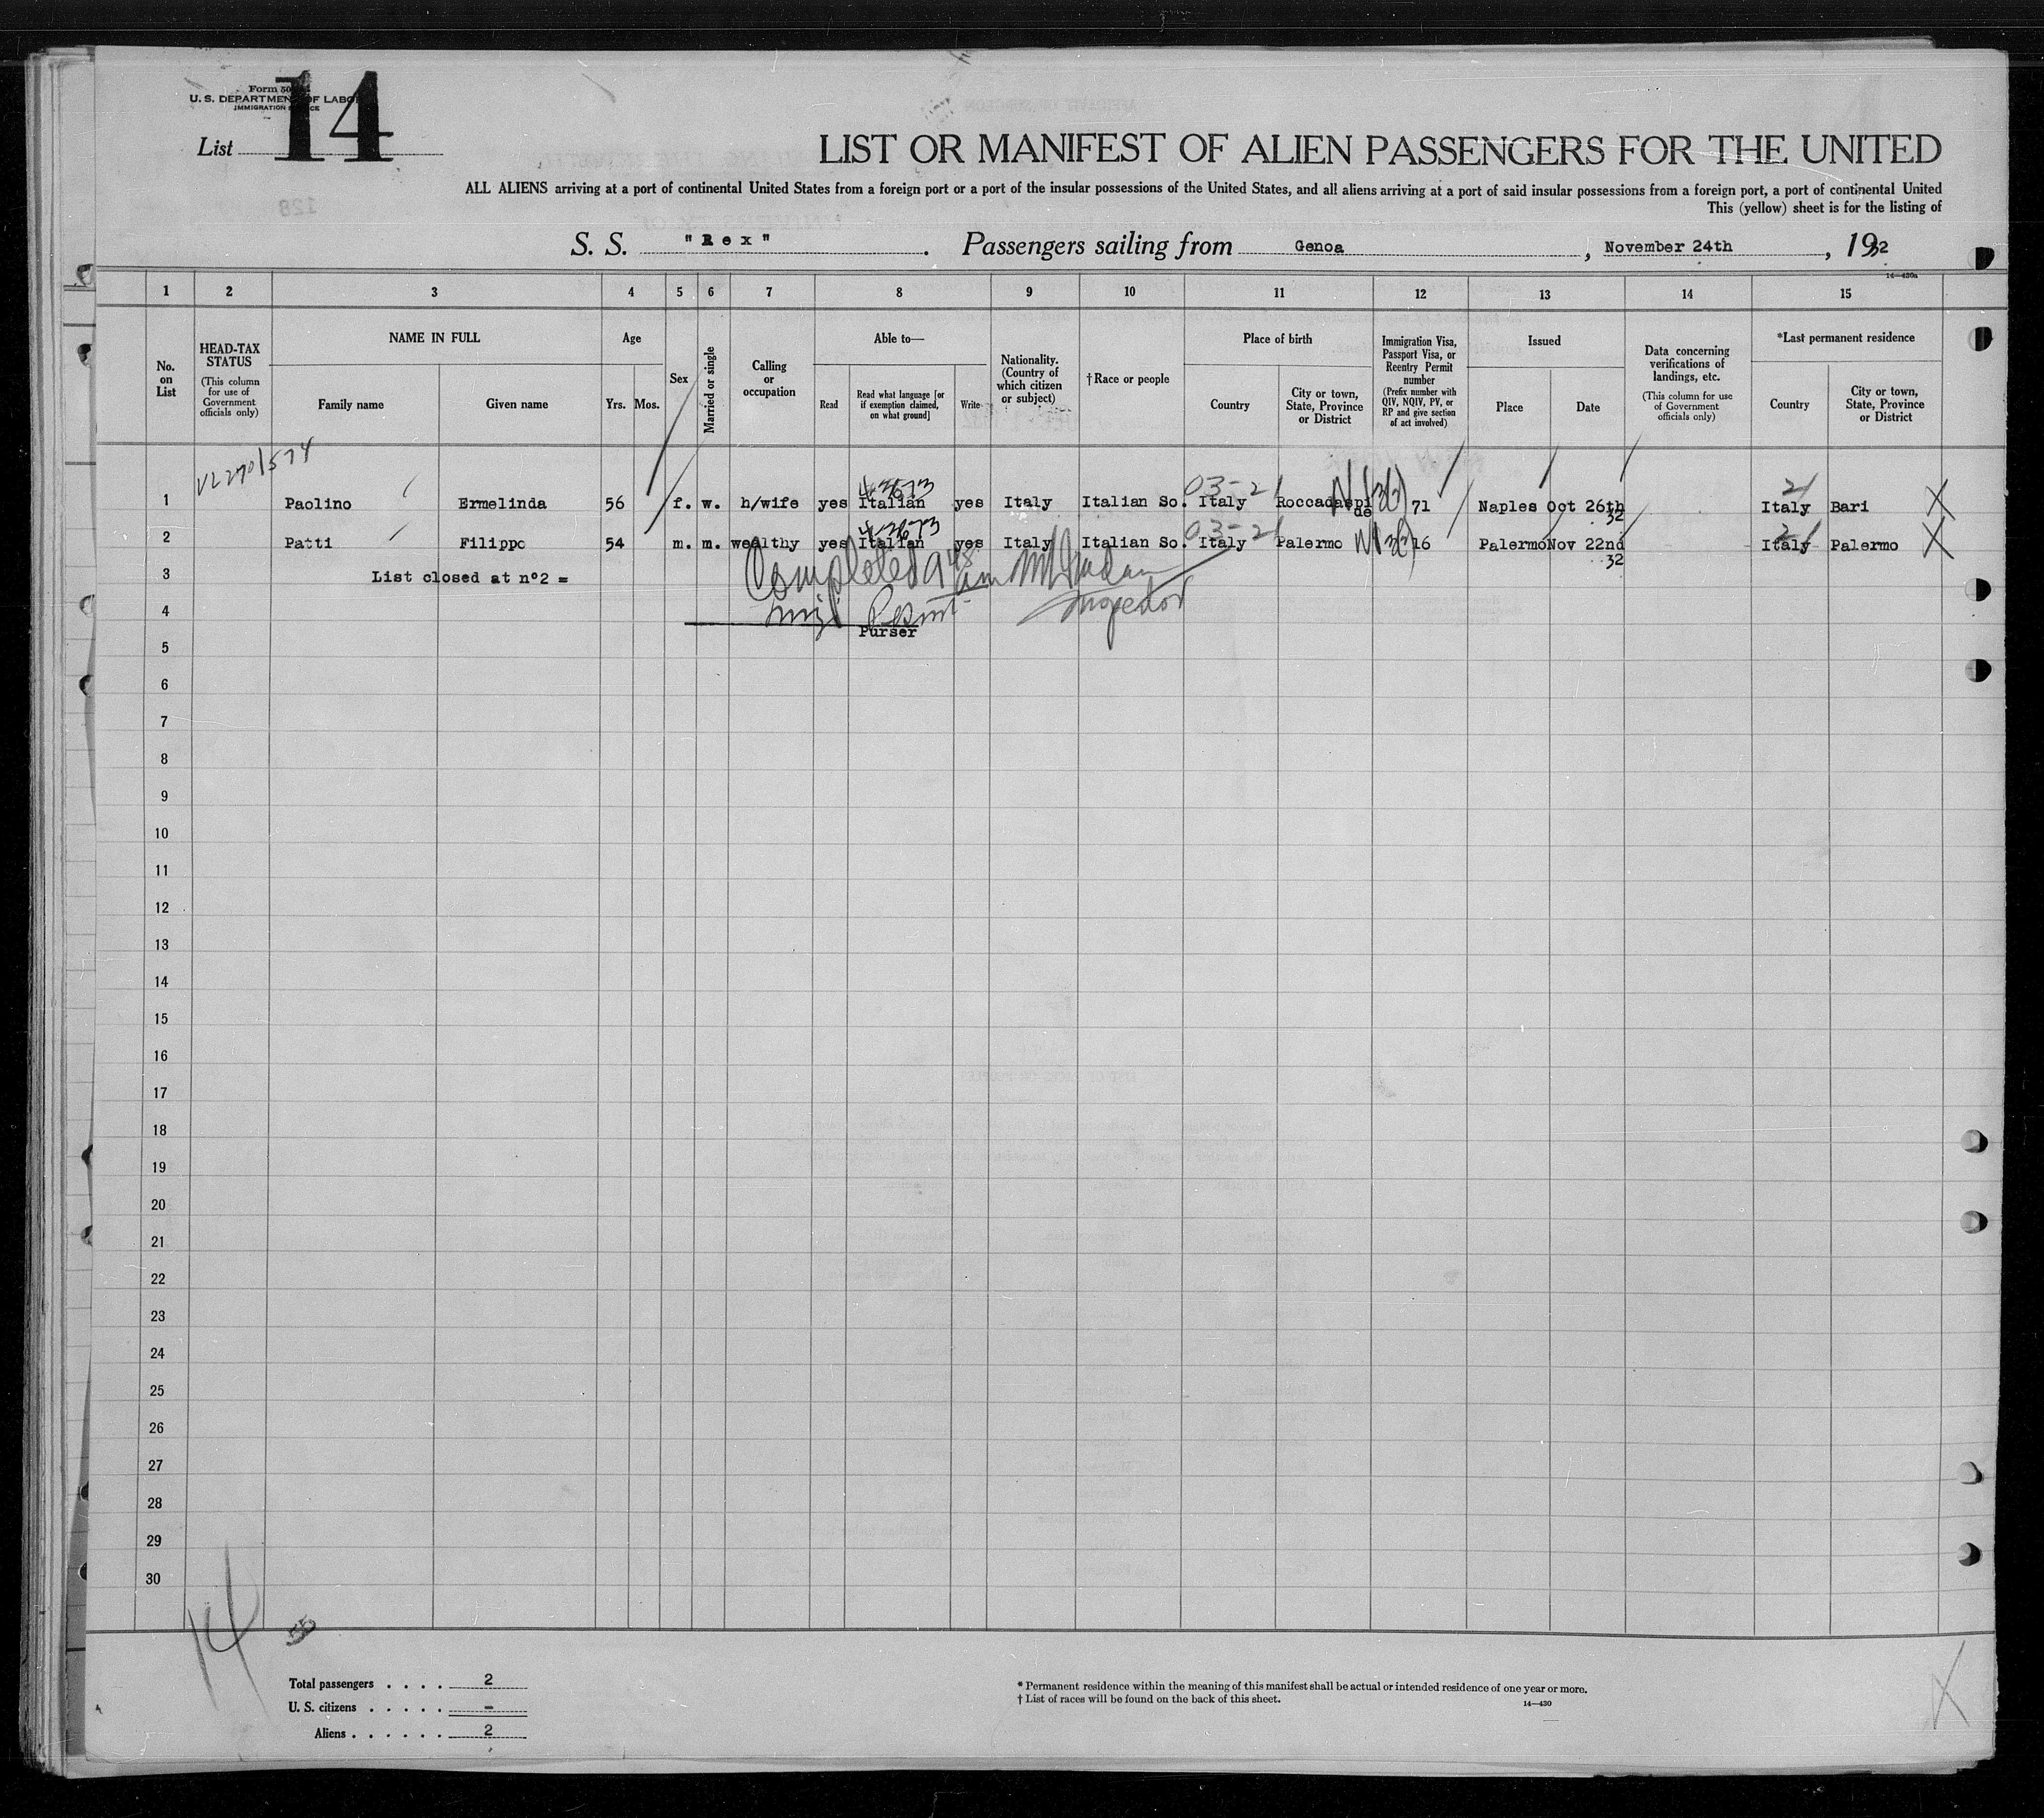 Form 50
U. S. DEPARTMENT OF LABOR
IMMIGRATION SERVICE
List 14
LIST OR MANIFEST OF ALIEN PASSENGERS FOR THE UNITED
ALL ALIENS arriving at a port of continental United States from a foreign port or a port of the insular possessions of the United States, and all aliens arriving at a port of said insular possessions from a foreign port, a port of continental United
This (yellow) sheet is for the listing of
S. S. "Rex". Passengers sailing from Genoa, November 24th, 1932
14—430a
1 2 3 4 5 6 7 8 9 10 11 12 13 14 15
No. on List
HEAD-TAX STATUS (This column for use of Government officials only)
NAME IN FULL
Family name
Given name
Age
Yrs. Mos.
Sex
Married or single
Calling or occupation
Able to—
Read
Read what language [or if exemption claimed, on what ground]
Write
Nationality. (Country of which citizen or subject)
†Race or people
Place of birth
Country
City or town, State, Province or District
Immigration Visa, Passport Visa, or Reentry Permit number (Prefix number with QIV, NQIV, PV, or RP and give section of act involved)
Issued
Place
Date
Data concerning verifications of landings, etc. (This column for use of Government officials only)
*Last permanent residence
Country
City or town, State, Province or District
03-21 21
1 Paolino Ermelinda 56 f. w. h/wife yes Italian yes Italy Italian So. Italy Roccadaspide 71 Naples Oct 26th 32 Italy Bari X
03-21 21
2 Patti Filippo 54 m. m. wealthy yes Italian yes Italy Italian So. Italy Palermo 16 Palermo Nov 22nd 32 Italy Palermo X
3 List closed at n°2 = Completed 9 48 am
Inspector
4
Purser
5
6
7
8
9
10
11
12
13
14
15
16
17
18
19
20
21
22
23
24
25
26
27
28
29
30
14
Total passengers . . . . 2
U. S. citizens . . . . . -
Aliens . . . . . . 2
* Permanent residence within the meaning of this manifest shall be actual or intended residence of one year or more.
† List of races will be found on the back of this sheet.
14—430
X